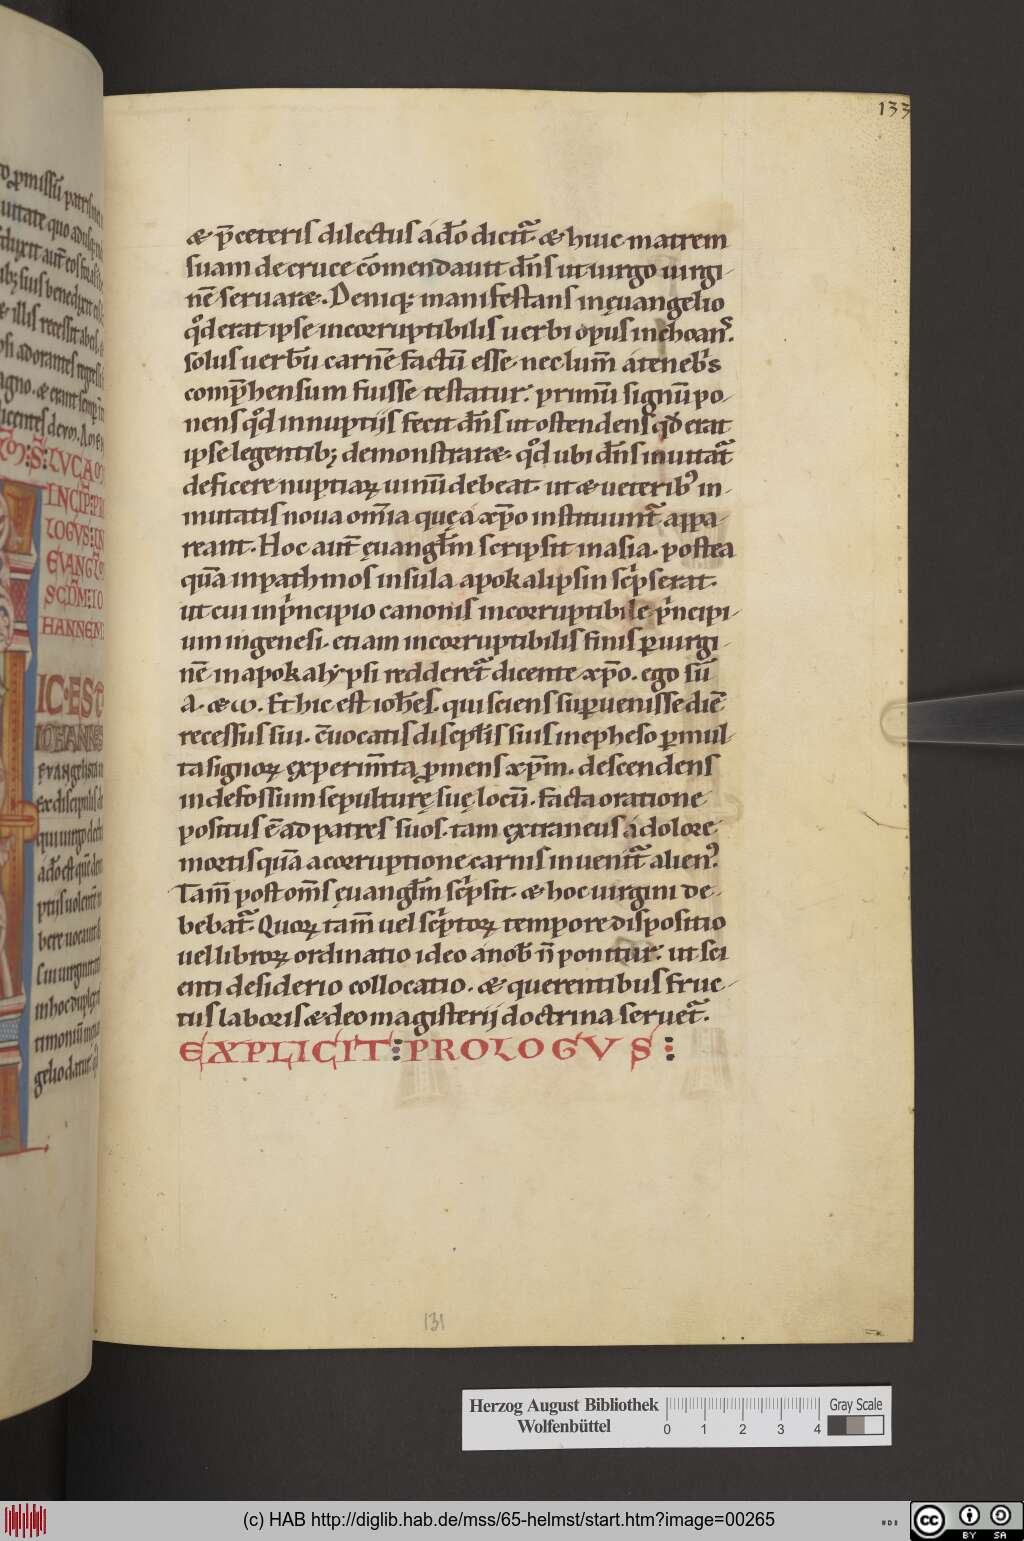 133
o ꝓmissū patris
æ p̄ceteris dilectus a dō dicit᷑. æ huic matrem
suam de cruce cōmendauit dn̄s ut uirgo uirgi-
nē seruaræ. Deniq; manifestans in ęuangelio
qd̓ erat ipse incorruptibilis uerbi opus inchoans.
solus uerbū carnē factū esse. nec lum̄ a tenebris
comp̄hensum fuisse testatur. primū signū po-
nens qd̓ in nuptijs fecit dn̄s ut ostendens qd̓ erat
ipse legentib; demonstraræ. qd̓ ubi dn̄s inuitat᷑
deficere nuptiaꝝ uinū debeat. ut æ ueterib᷒ in-
mutatis noua om̄ia quę a xp̄o instituunt᷑ appa-
reant. Hoc aut̄ ęuangł̄m scripsit in asia. postea
quā in pathmos insula apokalipsin sc̓pserat.
ut cui in p̓ncipio canonis incorruptibile p̓ncipi-
um in genesi. etiam incorruptibilis finis ꝑ uirgi-
nē in apokalẏpsi redderet᷑ dicente xp̄o. ego sū
A. æ ω. Et hic est ioħes. qui sciens supuenisse diē
recessus sui. c̄uocatis discipł̄is suis in epheso ꝑ mul-
ta signoꝝ experim̄ta ꝓmens xp̄m. descendens
in defossum sepulturę suę locū. facta oratione
positus ē ad patres suos. tam extraneus a dolore
mortis quā a corruptione carnis inuenit᷑ alien᷒.
Tam̄ post om̄s ęuangł̄m sc̓psit. æ hoc uirgini de-
bebat᷑. Quoꝝ tam̄ uel sc̓ptoꝝ tempore dispositio
uel libroꝝ ordinatio ideo a nob̄ n̄ ponitur. ut sci
enti desiderio collocatio. æ querentibus fruc-
tus laboris æ deo magisterij doctrina seruet᷑.
EXPLICIT : PROLOGVS :
131
LVCAM
INCIP̄ PRO
LOGVS IN
EVANGL̄
SCDM̄ IO
HANNEM
IC EST
IOHANNES
Evangelista
ex discipulis
qui uirgo
Herzog August Bibliothek
Wolfenbüttel
0 1 2 3 4
Gray Scale
(c) HAB http://diglib.hab.de/mss/65-helmst/start.htm?image=00265
cc BY SA